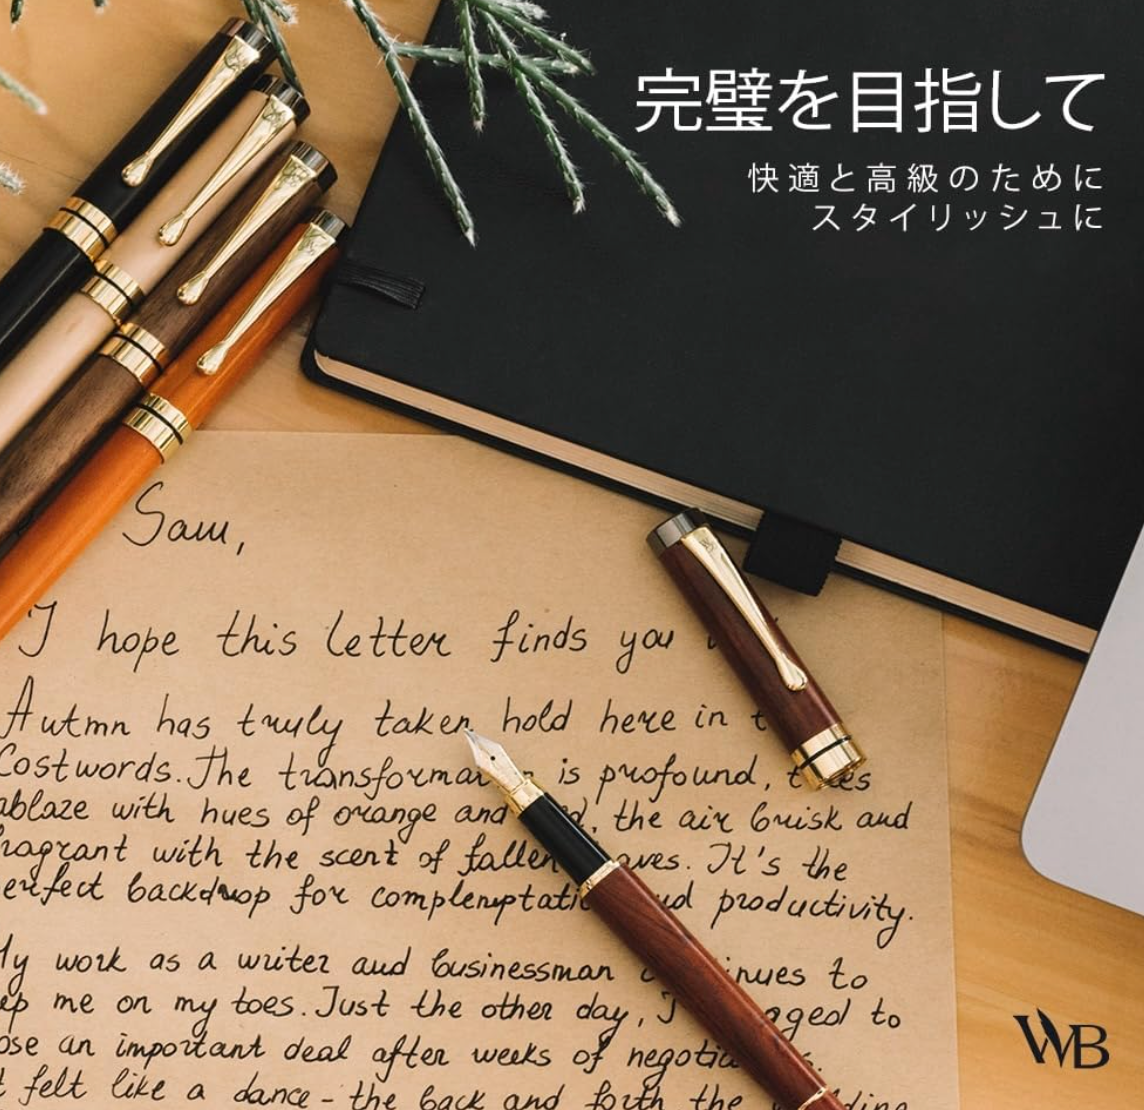 完璧を目指して
快適と高級のために
スタイリッシュに
Sam,
I hope this letter finds you
Autmn has truly taken hold here in
Costwords. The is profound,
ablaze with hues of orange and the air brisk and
with the scent of fallen It's the
backdrop for productivity.
work as a writer and businessman to
me on my toes. Just the other day, I to
an important deal after weeks of
felt like a dance - the back and forth the
WB